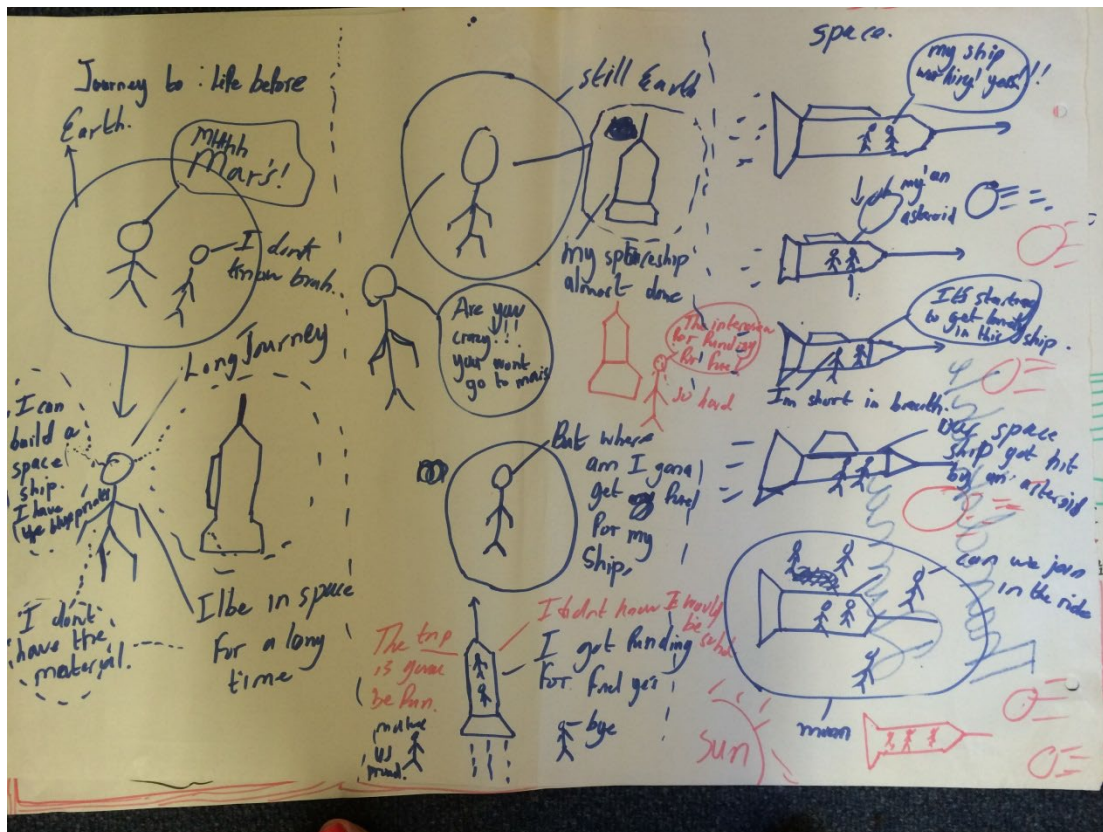 Journey to : Life before
Earth.
Mhhhh
Mar's!
I don't
know bruh.
Long Journey
I can
build a
space
ship.
I have
the blueprints
I don't
have the
material.
I'lbe in space
For a long
time
still Earth
my spaceship
almost done
Are you
crazy!!!
you wont
go to mars
The interview
for funding
for fuel
so hard
But where
am I gona
get my fuel
for my
ship,
The trip
is gona
be fun.
I didnt know I would
be
I got funding
for fuel yes
make
us
proud.
bye
space.
my ship
working! yeah!!!
my an
asteroid
It's starting
to get
in this ship.
Im short in breath.
our space
ship got hit
by an asteroid
can we join
in the ride
moon
sun